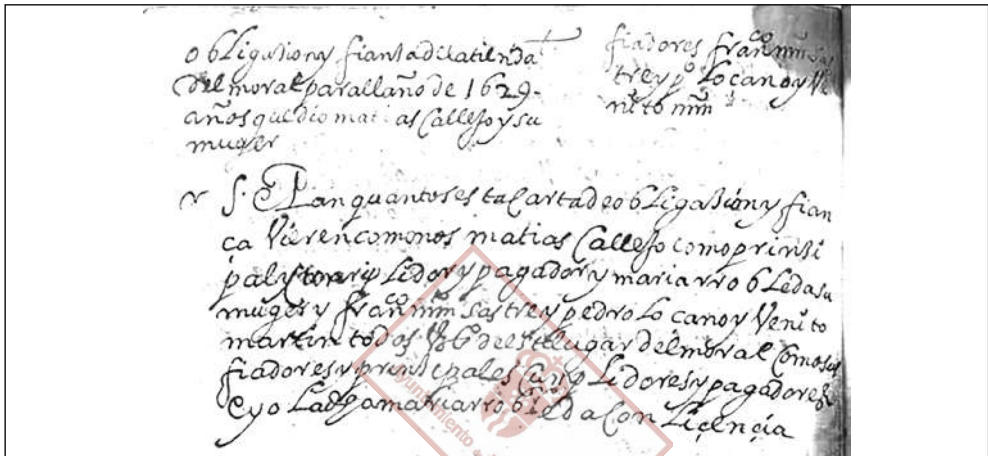 obligasion y fiansa de la tienda
del moral para llaño de 1629
años que dio matias Callejo y su
muger
fiadores franco mrn sas
tre y po Locano y Ve
nito mrn
S. E Pan quantos esta Carta de obligasion y fian
ça Vieren como nos matias Callejo como prinsi
pal y conplidor y pagador y maria rrobleda su
muger y franco mrn sastre y pedro Locano y Venito
martin todos Vos de este lugar del moral Como sus
fiadores y prinsipales Cunplidores y pagadores
e yo La dha maria rrobleda Con Liçençia
Ayuntamiento